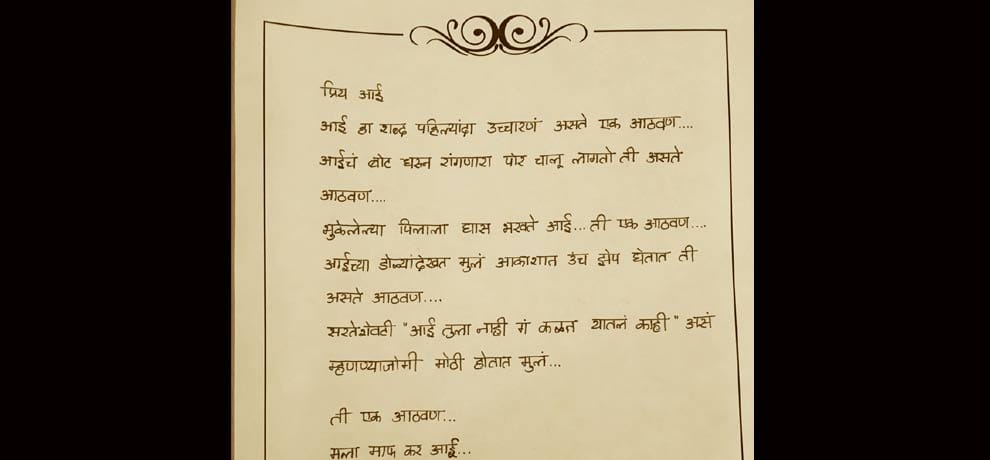 प्रिय आई
आई हा शब्द पहिल्यांदा उच्चारणं असते एक आठवण....
आईचं बोट धरुन रांगणारा पोर चालू लागतो ती असते
आठवण....
भुकेलेल्या पिलाला घास भरवते आई...ती एक आठवण....
आईच्या डोळ्यांदेखत मुलं आकाशात उंच झेप घेतात ती
असते आठवण....
सरतेशेवटी "आई तुला नाही गं कळत यातलं काही" असं
म्हणण्याजोगी मोठी होतात मुलं...
ती एक आठवण...
मला माफ कर आई...